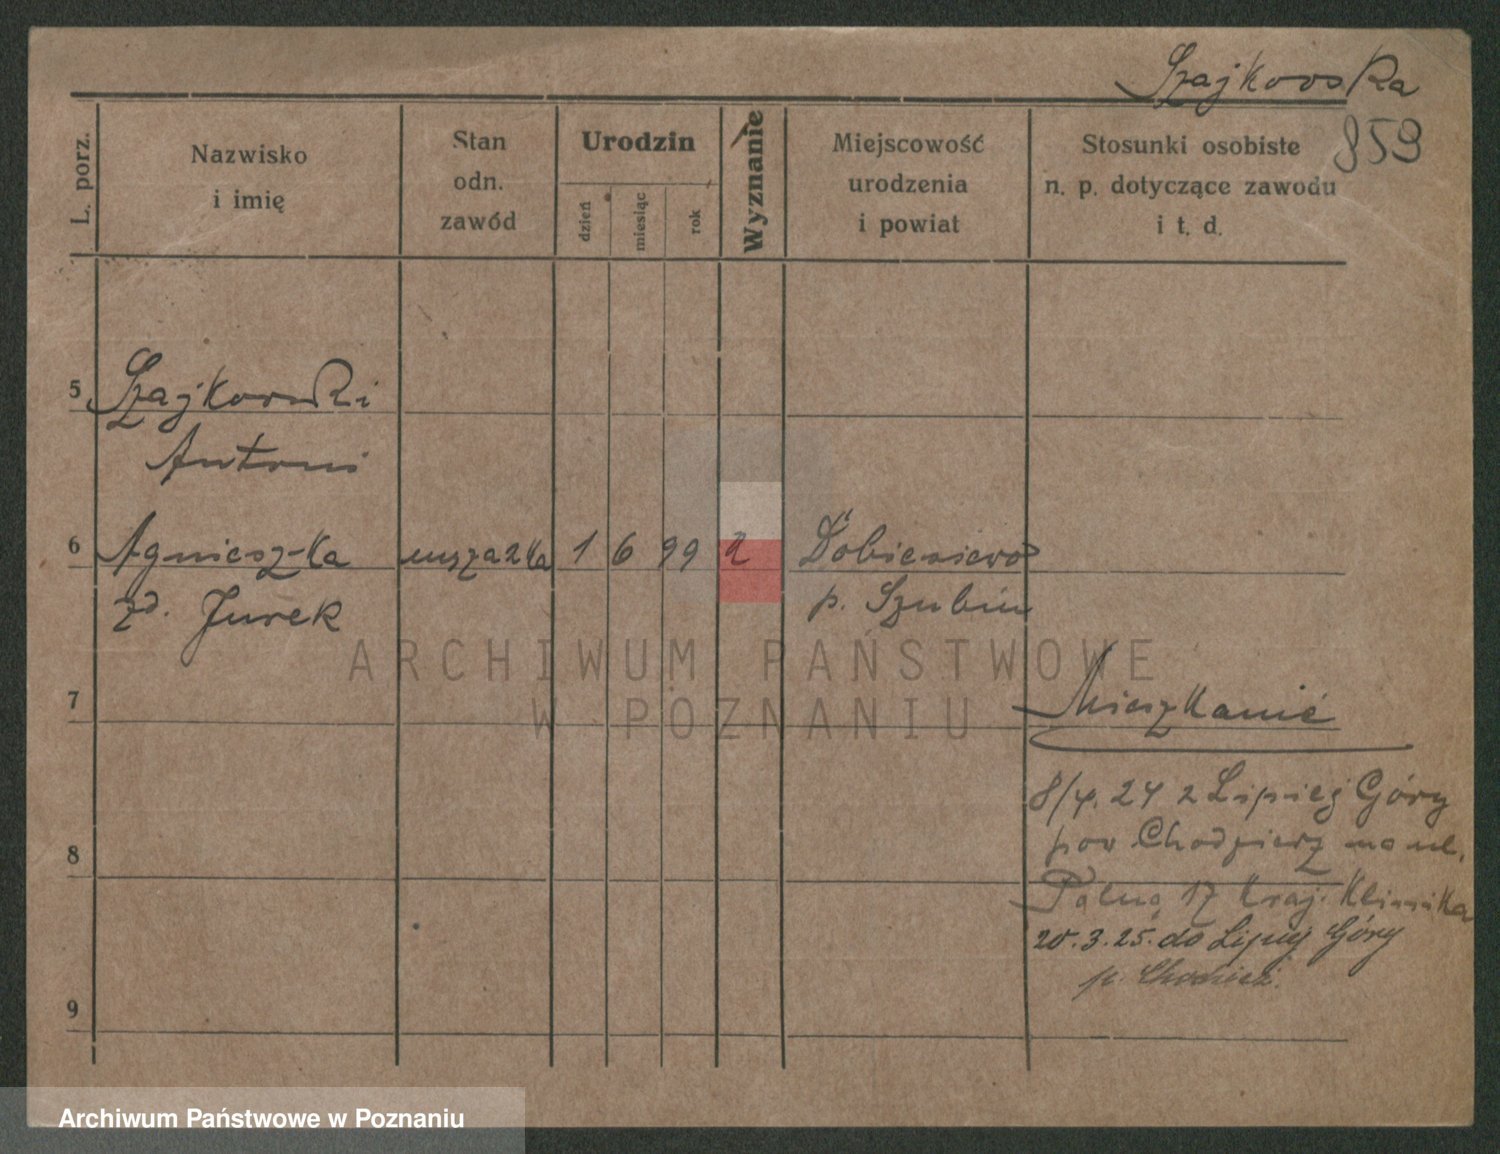 Szajkowska
859
L. porz.
Nazwisko
i imię
Stan
odn.
zawód
Urodzin
dzień
miesiąc
rok
Wyznanie
Miejscowość
urodzenia
i powiat
Stosunki osobiste
n. p. dotyczące zawodu
i t. d.
5 Szajkowski
Antoni
6 Agnieszka 1 6 99
zd. Jurek p. Szubin
7
Mieszkanie
8/4. 24 z Lipiej Góry
pow Chodzierz na ul.
8
Polną 17 Kraj. Klinika
20. 3. 25. do Lipiej Góry
p. Chodzież.
9
ARCHIWUM PAŃSTWOWE
W POZNANIU
Archiwum Państwowe w Poznaniu